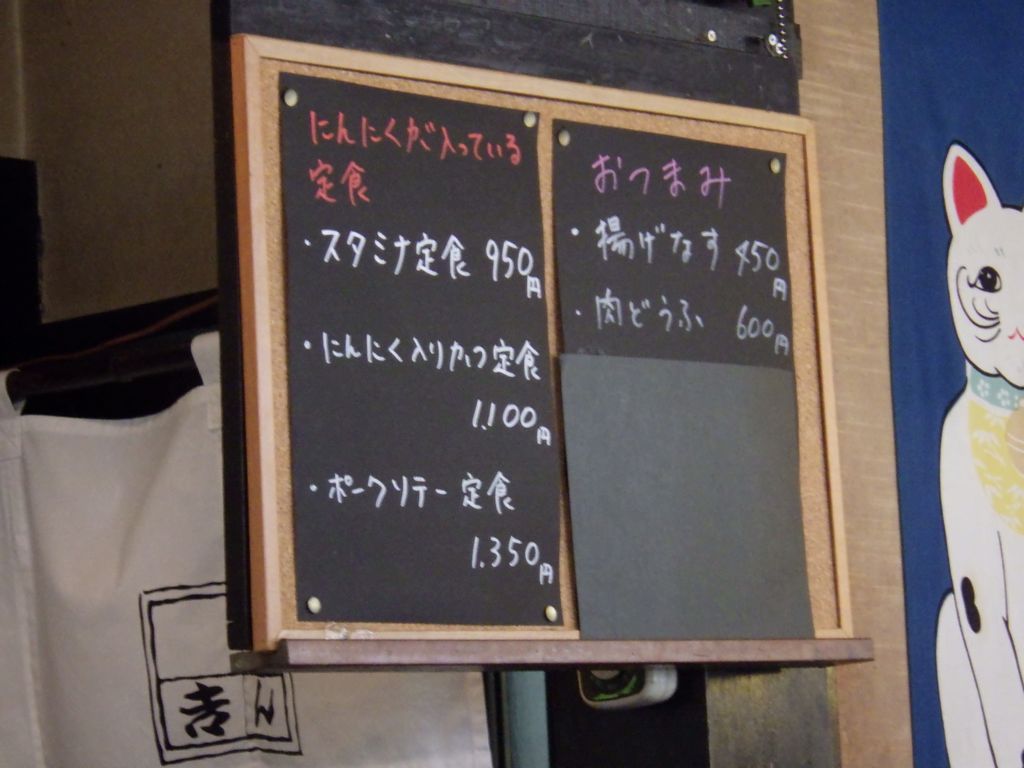 にんにくが入っている
定食
・スタミナ定食 950円
・にんにく入りカツ定食
1.100円
・ポークソテー定食
1.350円
おつまみ
・揚げなす 450円
・肉どうふ 600円
吉
ん